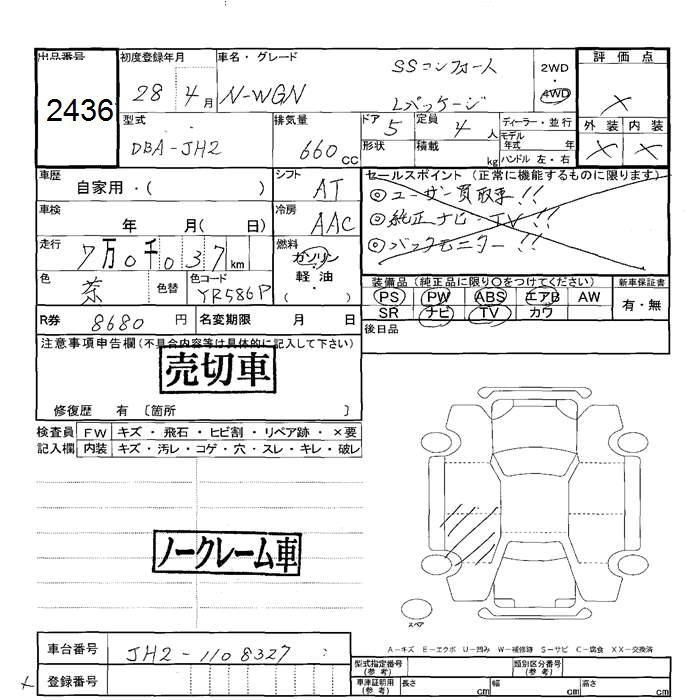 出品番号 初度登録年月 車名・グレード SSコンフォート 2WD 評価点
2436 28 4月 N-WGN Lパッケージ 4WD ×
型式 排気量 ドア 定員 ディーラー・並行 外装 内装
DBA-JH2 660cc 5 4人 モデル年式 年 × ×
形状 積載 kg ハンドル 左・右
車歴 シフト セールスポイント(正常に機能するものに限ります)
自家用・( ) AT ◎ユーザー買取車!!
車検 冷房 ◎純正ナビ・TV!!
年 月( 日) AAC ◎バックモニター!!
走行 燃料
7万0千037km ガソリン
色 色替 色コード 軽・油 装備品(純正品に限り○をつけてください) 新車保証書
茶 YR586P ( ) PS PW ABS エアB AW 有・無
R券 8680円 名変期限 月 日 SR ナビ TV カワ
注意事項申告欄(不具合内容等は具体的に記入して下さい) 後日品
売切車
修復歴 有 〔箇所 〕
検査員 FW キズ・飛石・ヒビ割・リペア跡・×要
記入欄 内装 キズ・汚レ・コゲ・穴・スレ・キレ・破レ
ノークレーム車
スペア
A-キズ E-エクボ U-凹み W-補修跡 S-サビ C-腐食 XX-交換済
車台番号 JH2-1108327 型式指定番号(参考) 類別区分番号(参考)
× 登録番号 車庫証明用(参考) 長さ cm 幅 cm 高さ cm